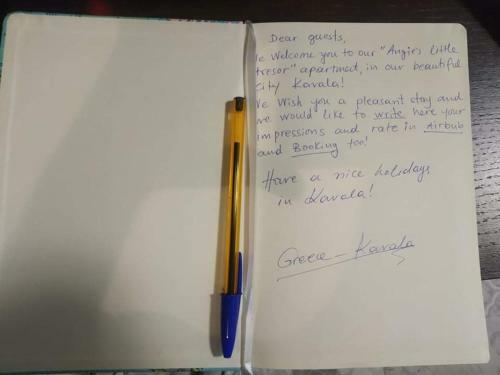 Dear guests,
We welcome you to our "Angie's little
tresor" apartmed, in our beautiful
city Kavala!
We Wish you a pleasant stay and
we would like to write here your
impressions and rate in Airbnb
and Booking too!
Have a nice holidays
in Kavala!
Greece - Kavala